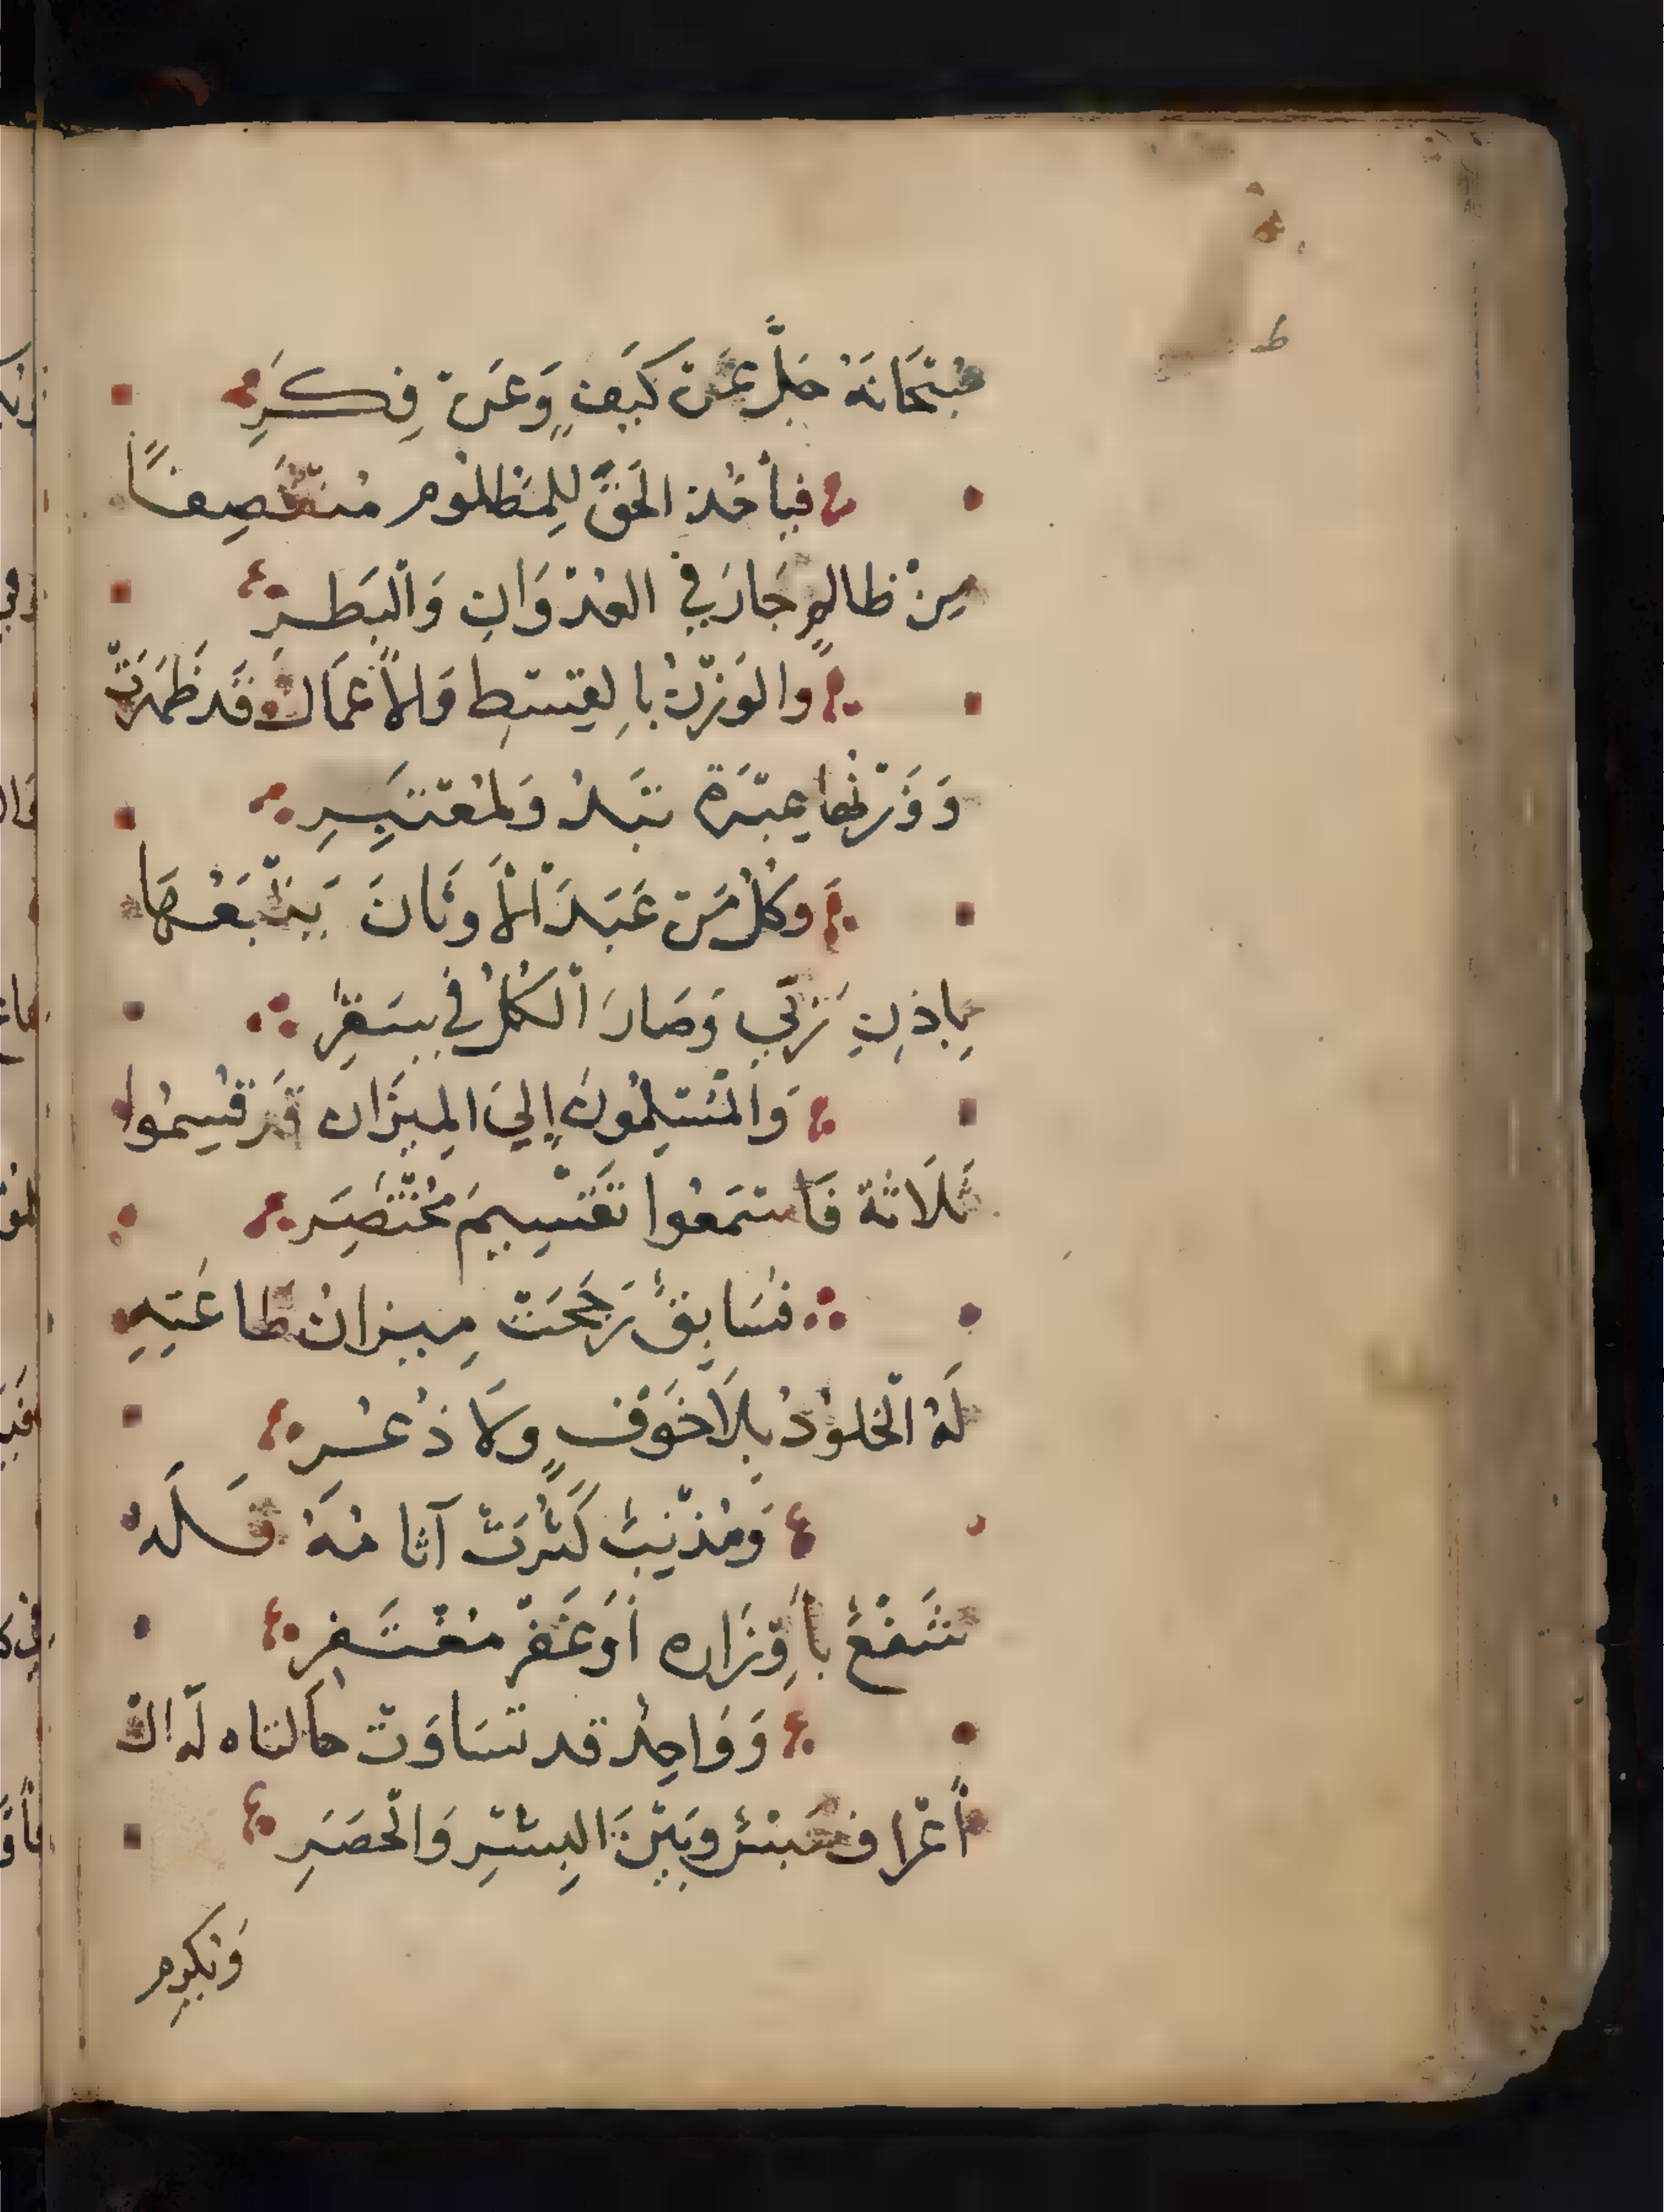 ط
سُبْحَانَهُ جَلَّ عَنْ كَيْفٍ وَعَنْ فِكَرِ
فيأخُذ الحَقَّ لِلمَظْلُوم مُنتَصِفًا
مِنْ ظالمٍ جَارَ فِي العُدْوَانِ وَالْبَطَرِ
والوَزْنُ بالِقِسْطِ وَالأَعْمَالُ قَد ظَهَرَتْ
وَوَزْنُها عِبْرَة تَبدُ وَلمُعْتَبِرِ
وَكُلُّ مَنْ عَبَدَ الْأَوثَانَ يَتْبَعُهَا
بِإِذنِ رَبِّي وَصَارَ الْكُلُّ فِي سَقَرِ
وَالمُسْلِمُونَ إِلَي المِيزَان قَد قُسِمُوا
ثَلَاثَة فَاستَمَعُوا تَقْسِيمَ مُخْتَصِرِ
فسَابِقٌ رَجَحَتْ مِيزَانُ طَاعَتِهِ
لَهُ الْخلُوْدُ بِلَا خَوْفٍ وَلَا ذُعُرِ
وَمُذْنِبٌ كَثُرَتْ آثامُهُ فَلَهُ
شَفْعٌ بأَوِزَاره أَوْ عَفْوُ مُغْتَفِرِ
وَوَاحِدٌ قد تسَاوَتْ حَالتاه لَهُ الْ
أَعْرَاف حَبْسٌ وَبَيْنَ البِشْرِ وَالْحَصَرِ
وَيُكْرِم